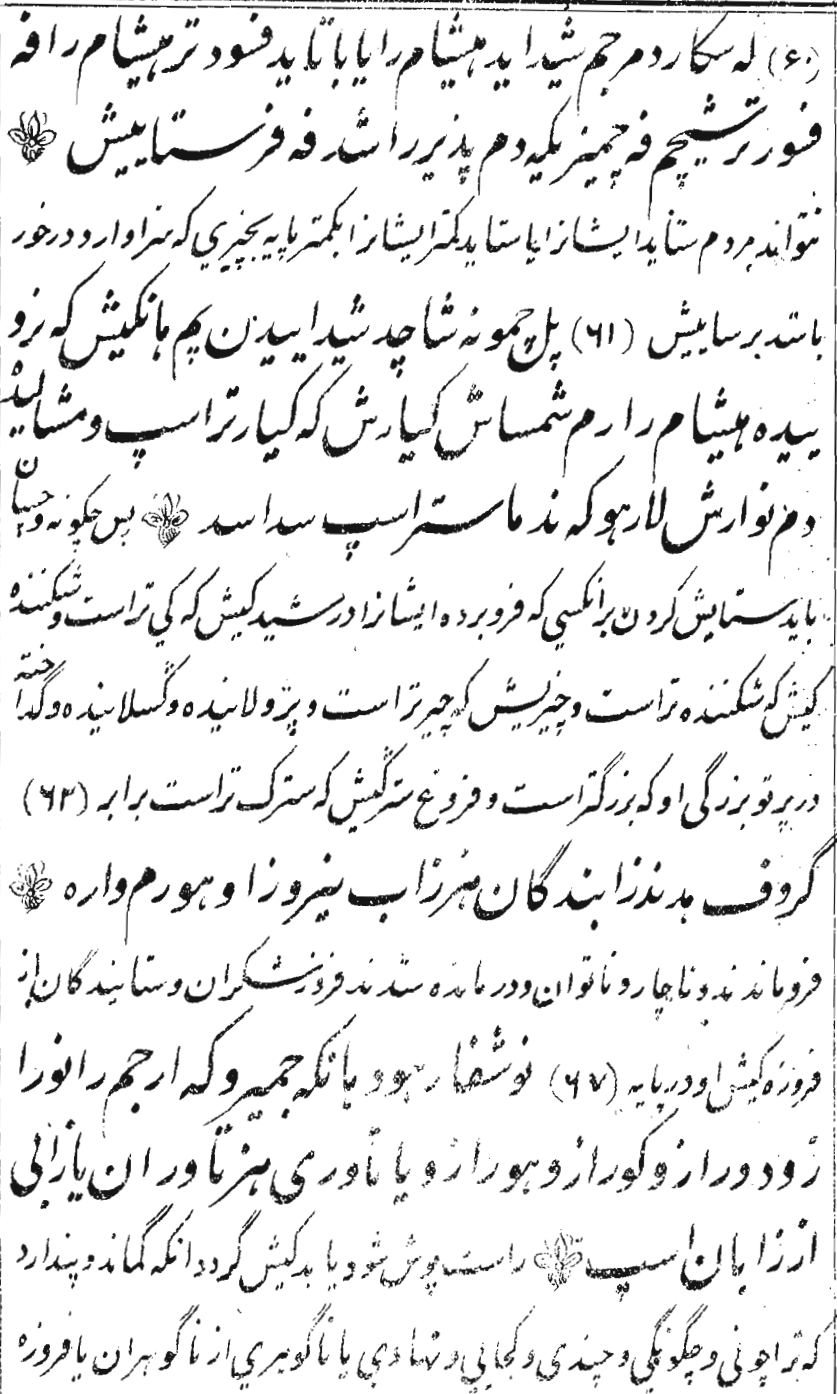 (۶۰) له سکارد مرجم شیداید هیشام را یا باتاید فنود تر هیشام را فه
فنور تر شیچم فه چمیز یکیه دم پذیر را شد فه فرستاییش
نتواند مردم ستاید ایشانرا یا ستاید کمتر ایشانرا بکمتر پایه بچیزی که سزاوار و درخور
باشد برساییش (۶۱) پل چمونه شاچد شیداییدن پم هانکیش که نرو
ییده هیشام را رم شمساش کیارش که کیار تر اسپ و مشالیدن
دم نوارش لار هو که ند ماستر اسپ سداسد پس چگونه و چسان
باید ستایش کردن بر آنکسی که فرو برده ایشانرا در شید کیش که کی تر است و شکننده
کیش که شکننده تر است و چیزیش که چیر تر است و پژولانیده و گسلانیده و گداخته
در پرتو بزرگی او که بزرگتر است و فروغ سترگیش که سترک تر است برابر (۶۳)
گروف مدند زابندگان هنرزاب نیروزا و هورم واره
فرو ماندند و ناچار و ناتوان و درمانده شدند فروزشگران و ستایندگان از
فروزه کیش او در پایه (۶۷) نوشفار هوو هانکه جمیرو که ارجم را نورا
زود ورا زو کورا زو هورا زو یا تاوری هنر تاوران یا زابی
از زابان اسپ راست پوش شود یا بدکیش گردد آنکه گماند و پندارد
که ترا چونی و چگونگی و چندی و کجایی و نهادی یا ناگوهری از ناگوهران یا فروزه